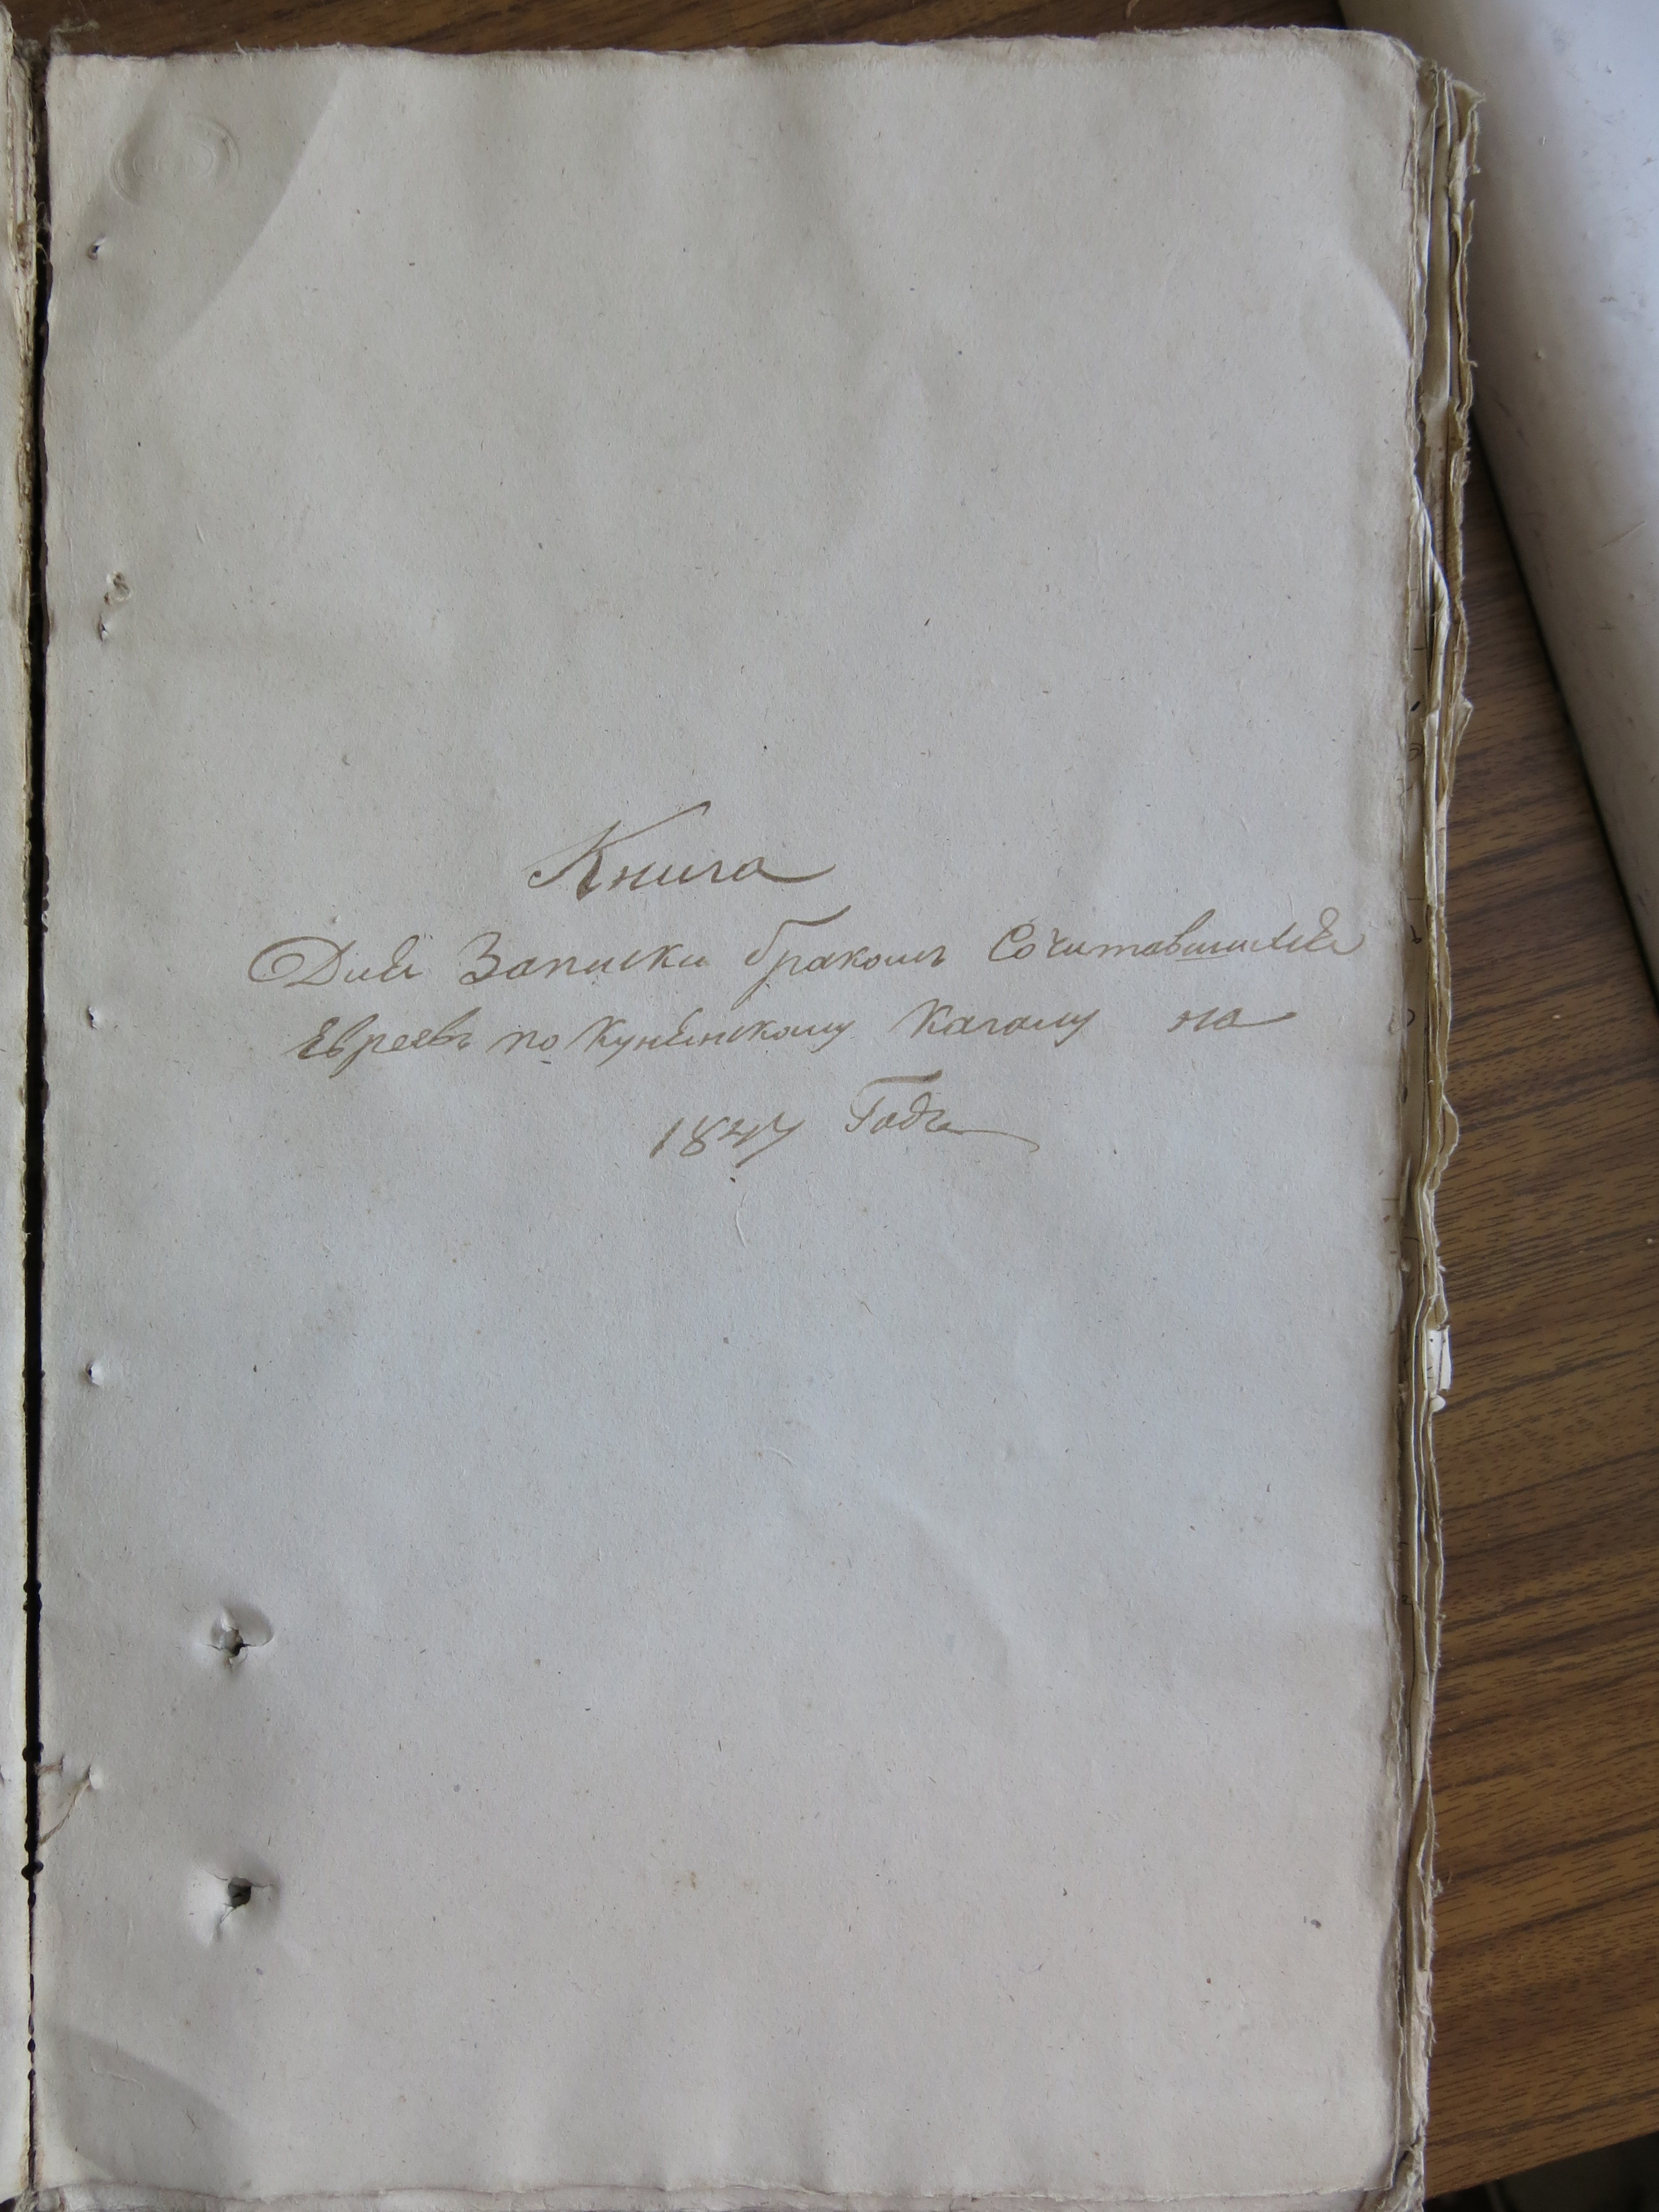 Книга
Для Записки бракомъ Сочитавшихся
Евреевъ по Кунѣнскому Кагалу на
Года